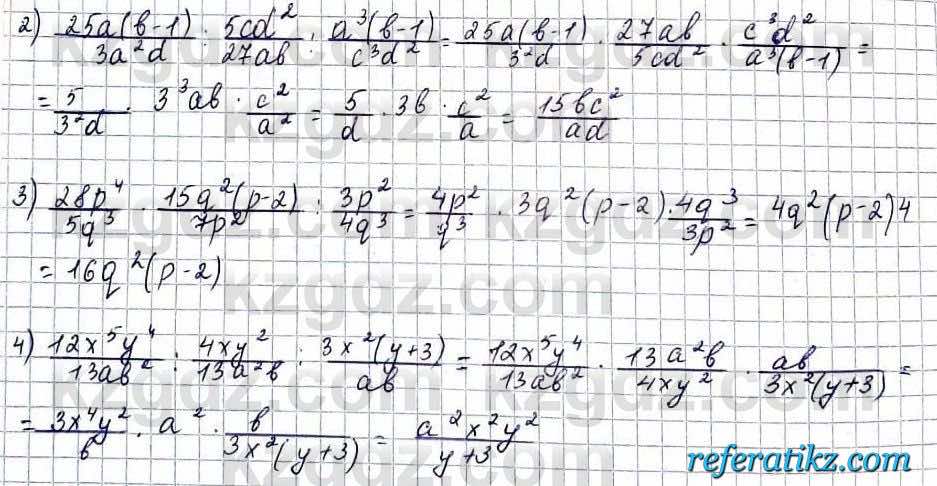 2) 25a(b-1)/3a²d : 5cd²/27ab : a³(b-1)/c³d² = 25a(b-1)/3²d · 27ab/5cd² · c³d²/a³(b-1) =
= 5/3²d · 3³ab · c²/a² = 5/d · 3b · c²/a = 15bc²/ad
3) 28p⁴/5q³ · 15q²(p-2)/7p² : 3p²/4q³ = 4p²/q³ · 3q²(p-2) · 4q³/3p² = 4q²(p-2)4
= 16q²(p-2)
4) 12x⁵y⁴/13ab² : 4xy²/13a²b : 3x²(y+3)/ab = 12x⁵y⁴/13ab² · 13a²b/4xy² · ab/3x²(y+3) =
= 3x⁴y²/b · a² · b/3x²(y+3) = a²x²y²/y+3
kzgdz.com
referatikz.com